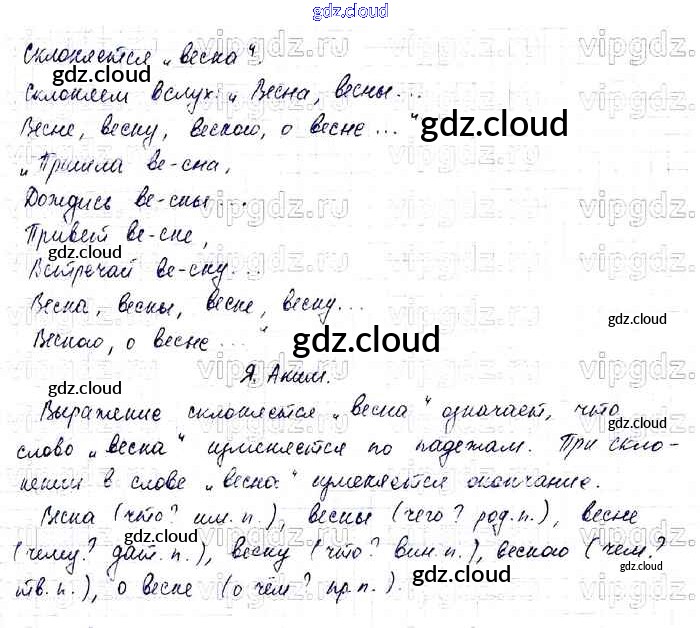 gdz.cloud
Склоняется „весна“.
Склоняем вслух: „Весна, весны...
Весне, весну, весною, о весне...“
„Пришла ве-сна,
Дождись ве-сны...
Привет ве-сне,
Встречай ве-сну...
Весна, весны, весне, весну...
Весною, о весне...“
Я. Аким.
Выражение склоняется „весна“ означает, что
слово „весна“ изменяется по падежам. При скло-
нении в слове „весна“ изменяется окончание.
Весна (что? им. п.), весны (чего? род. п.), весне
(чему? дат. п.), весну (что? вин. п.), весною (чем?
тв. п.), о весне (о чём? пр. п.).
gdz.cloud
vipgdz.ru